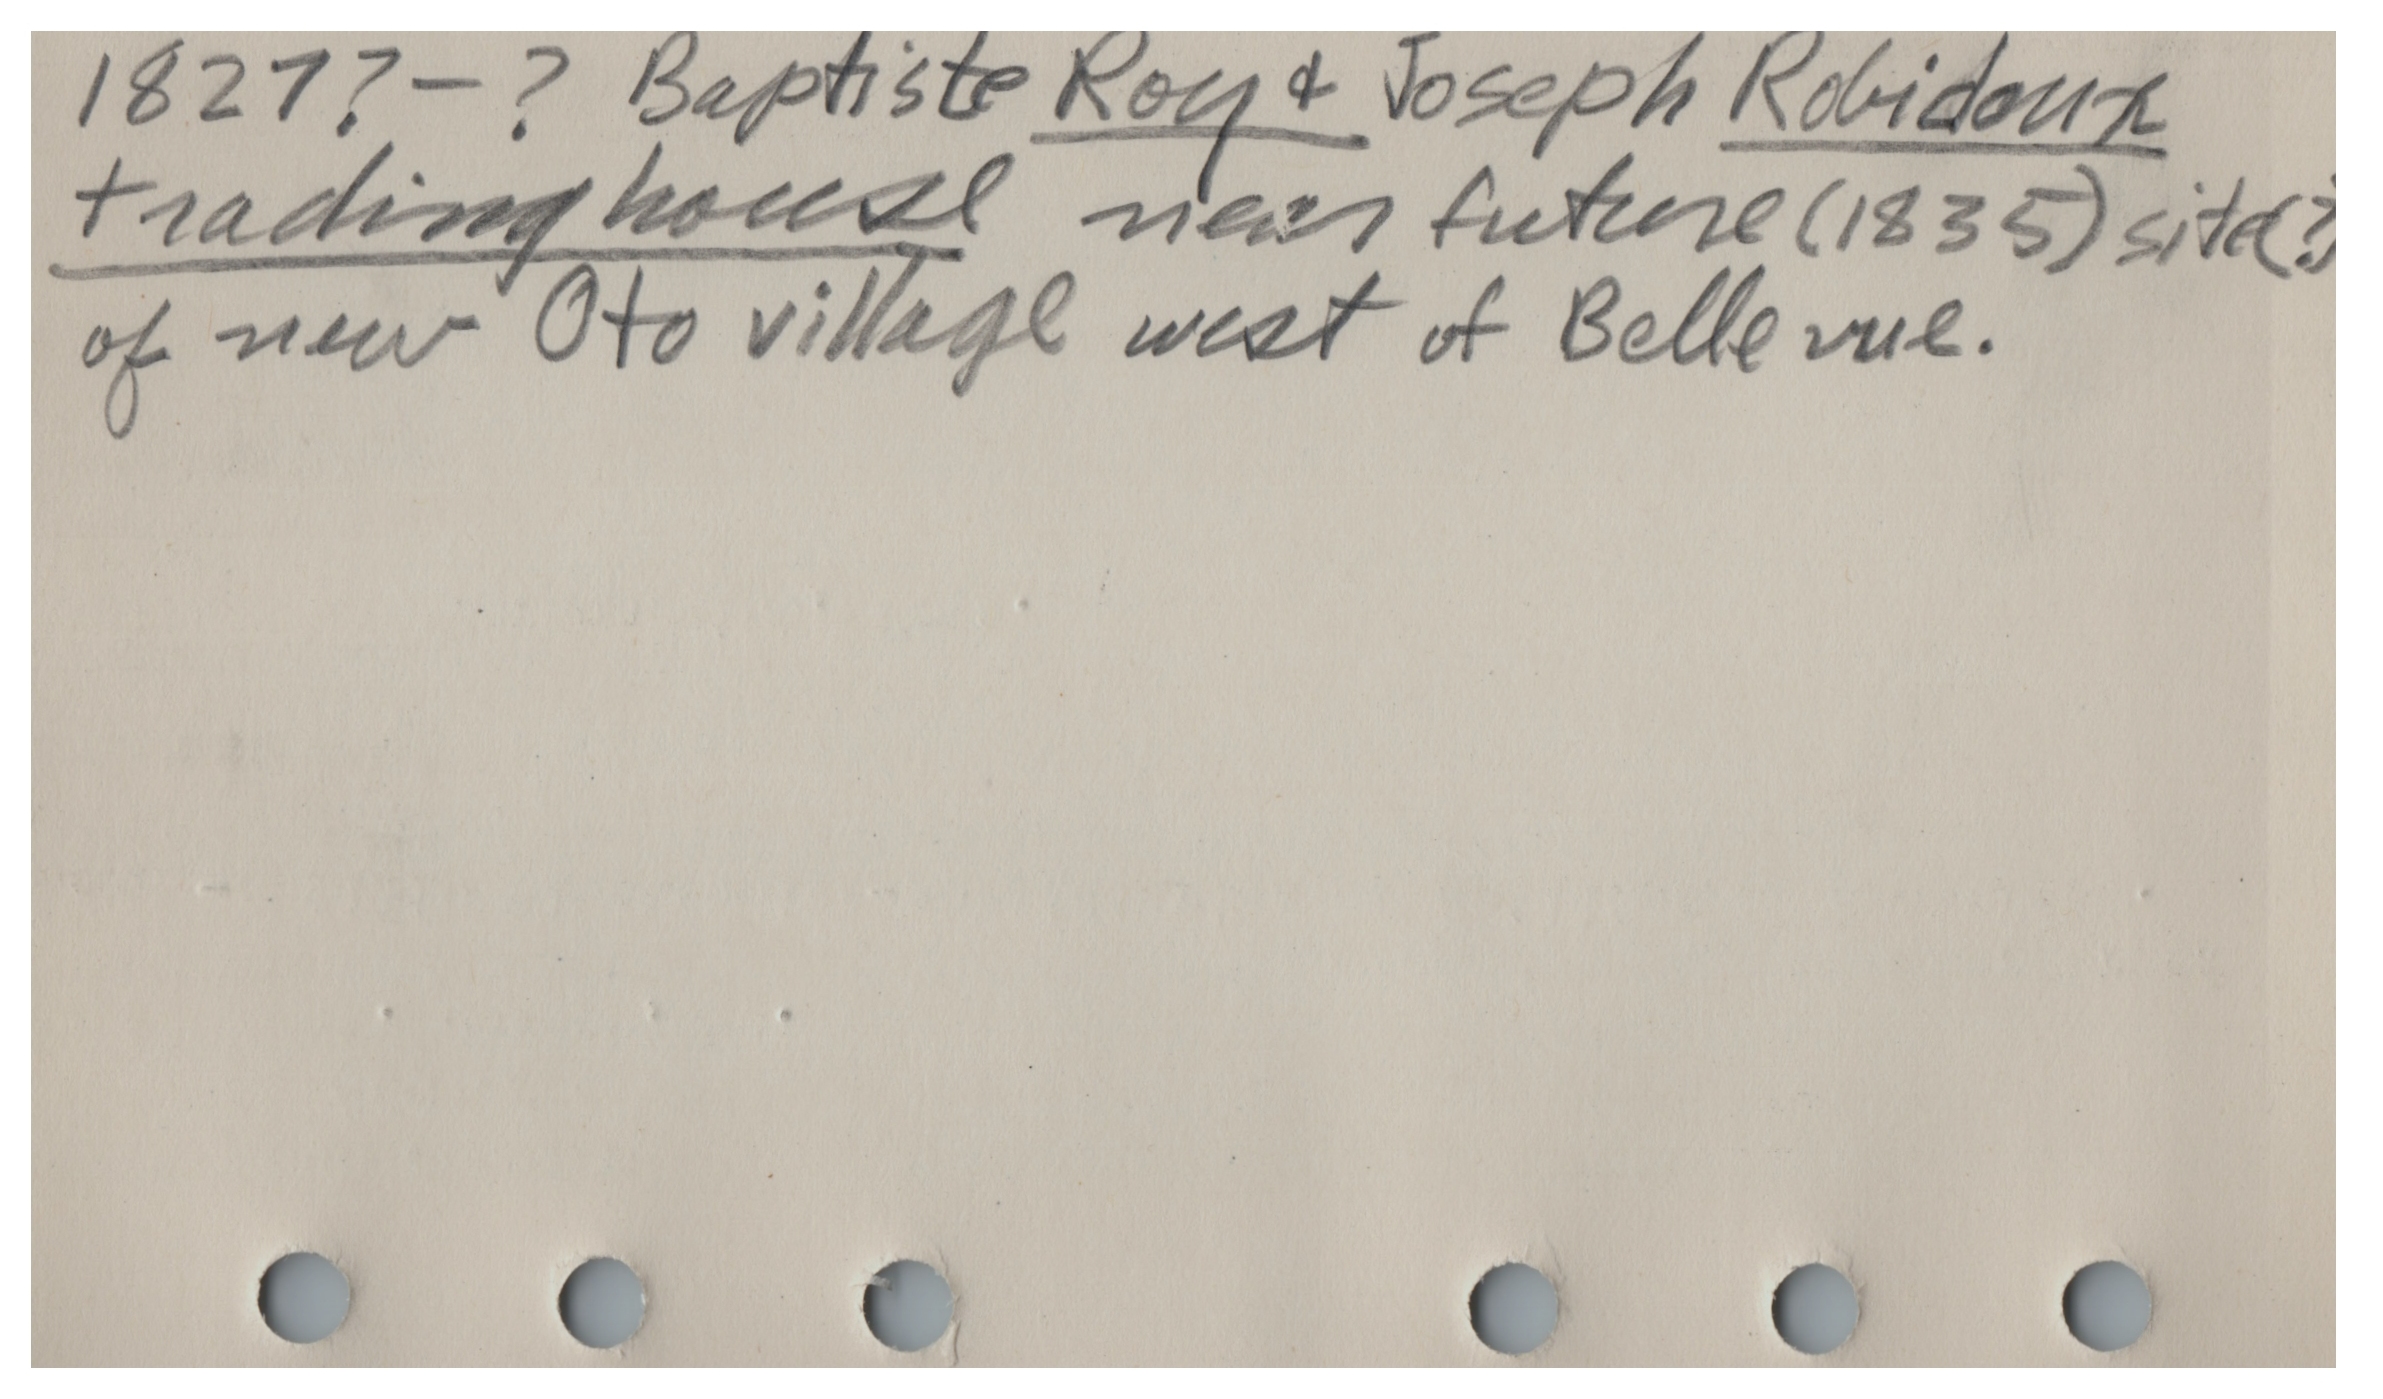 1827?-? Baptiste Roy & Joseph Robidoux
trading house near future (1835) site(?)
of new Oto village west of Bellevue.